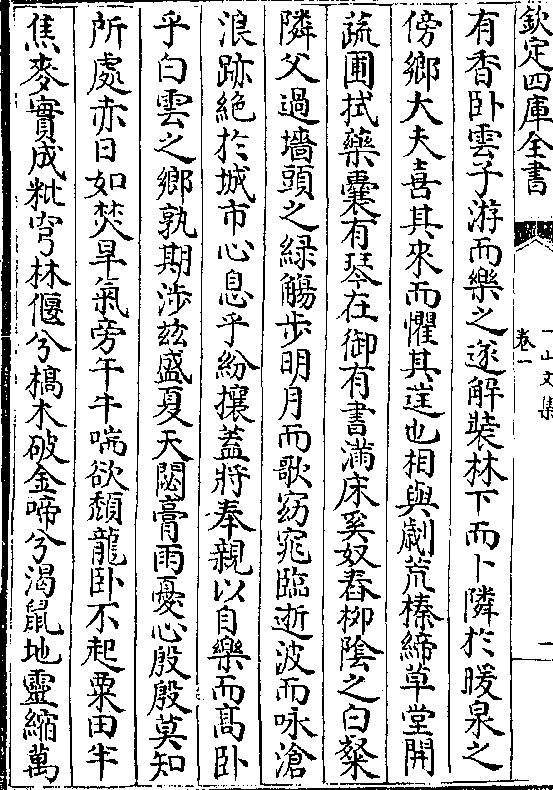 欽定四庫全書
一山文集
卷一
一
有香卧雲子游而樂之遂解裝林下而卜隣於暖泉之
傍鄉大夫喜其來而懼其迋也相與劚荒榛締草堂開
蔬圃拭藥囊有琴在御有書滿床奚奴舂柳隂之白粲
隣父過墻頭之緑觴步明月而歌窈窕臨逝波而咏滄
浪跡絶於城市心息乎紛攘蓋將奉親以自樂而髙卧
乎白雲之鄉孰期涉兹盛夏天閟膏雨憂心殷殷莫知
所處赤日如焚旱氣旁午牛喘欲頹龍卧不起粟田半
焦麥實成粃穹林偃兮槁木破金啼兮渴鼠地靈縮萬